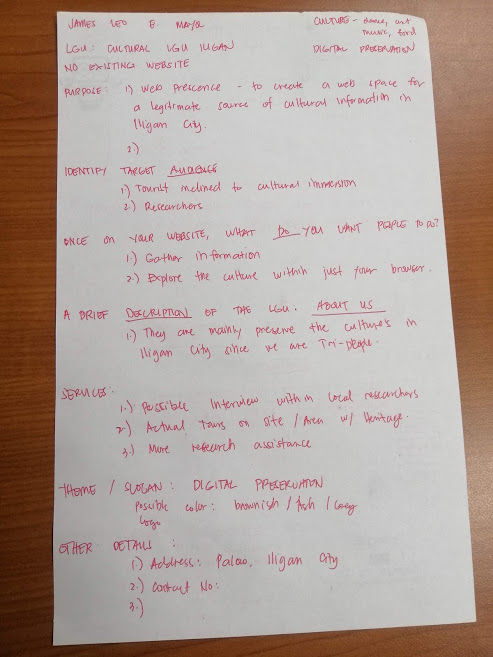 JAMES LEO E. MAYOL
CULTURE - dance, art
music, food
LGU: CULTURAL LGU ILIGAN
DIGITAL PRESERVATION
NO EXISTING WEBSITE
PURPOSE: 1) Web Prescence - to create a web space for
a legitimate source of cultural information in
Iligan City.
2.)
IDENTIFY TARGET AUDIENCE
1.) Tourist inclined to cultural immersion
2.) Researchers
ONCE ON YOUR WEBSITE, WHAT DO YOU WANT PEOPLE TO DO?
1.) Gather information
2.) Explore the culture within just your browser.
A BRIEF DESCRIPTION OF THE LGU: ABOUT US
1.) They are mainly preserve the culture's in
Iligan City since we are Tri-people.
SERVICES:
1.) Possible Interview within local researchers
2.) Actual Tours on site / Area w/ Heritage.
3.) More research assistance
THEME / SLOGAN: DIGITAL PRESERVATION
Possible color: brownish / Ash /
Logo
OTHER DETAILS:
1.) Address: Palao, Iligan City
2.) Contact No:
3.)